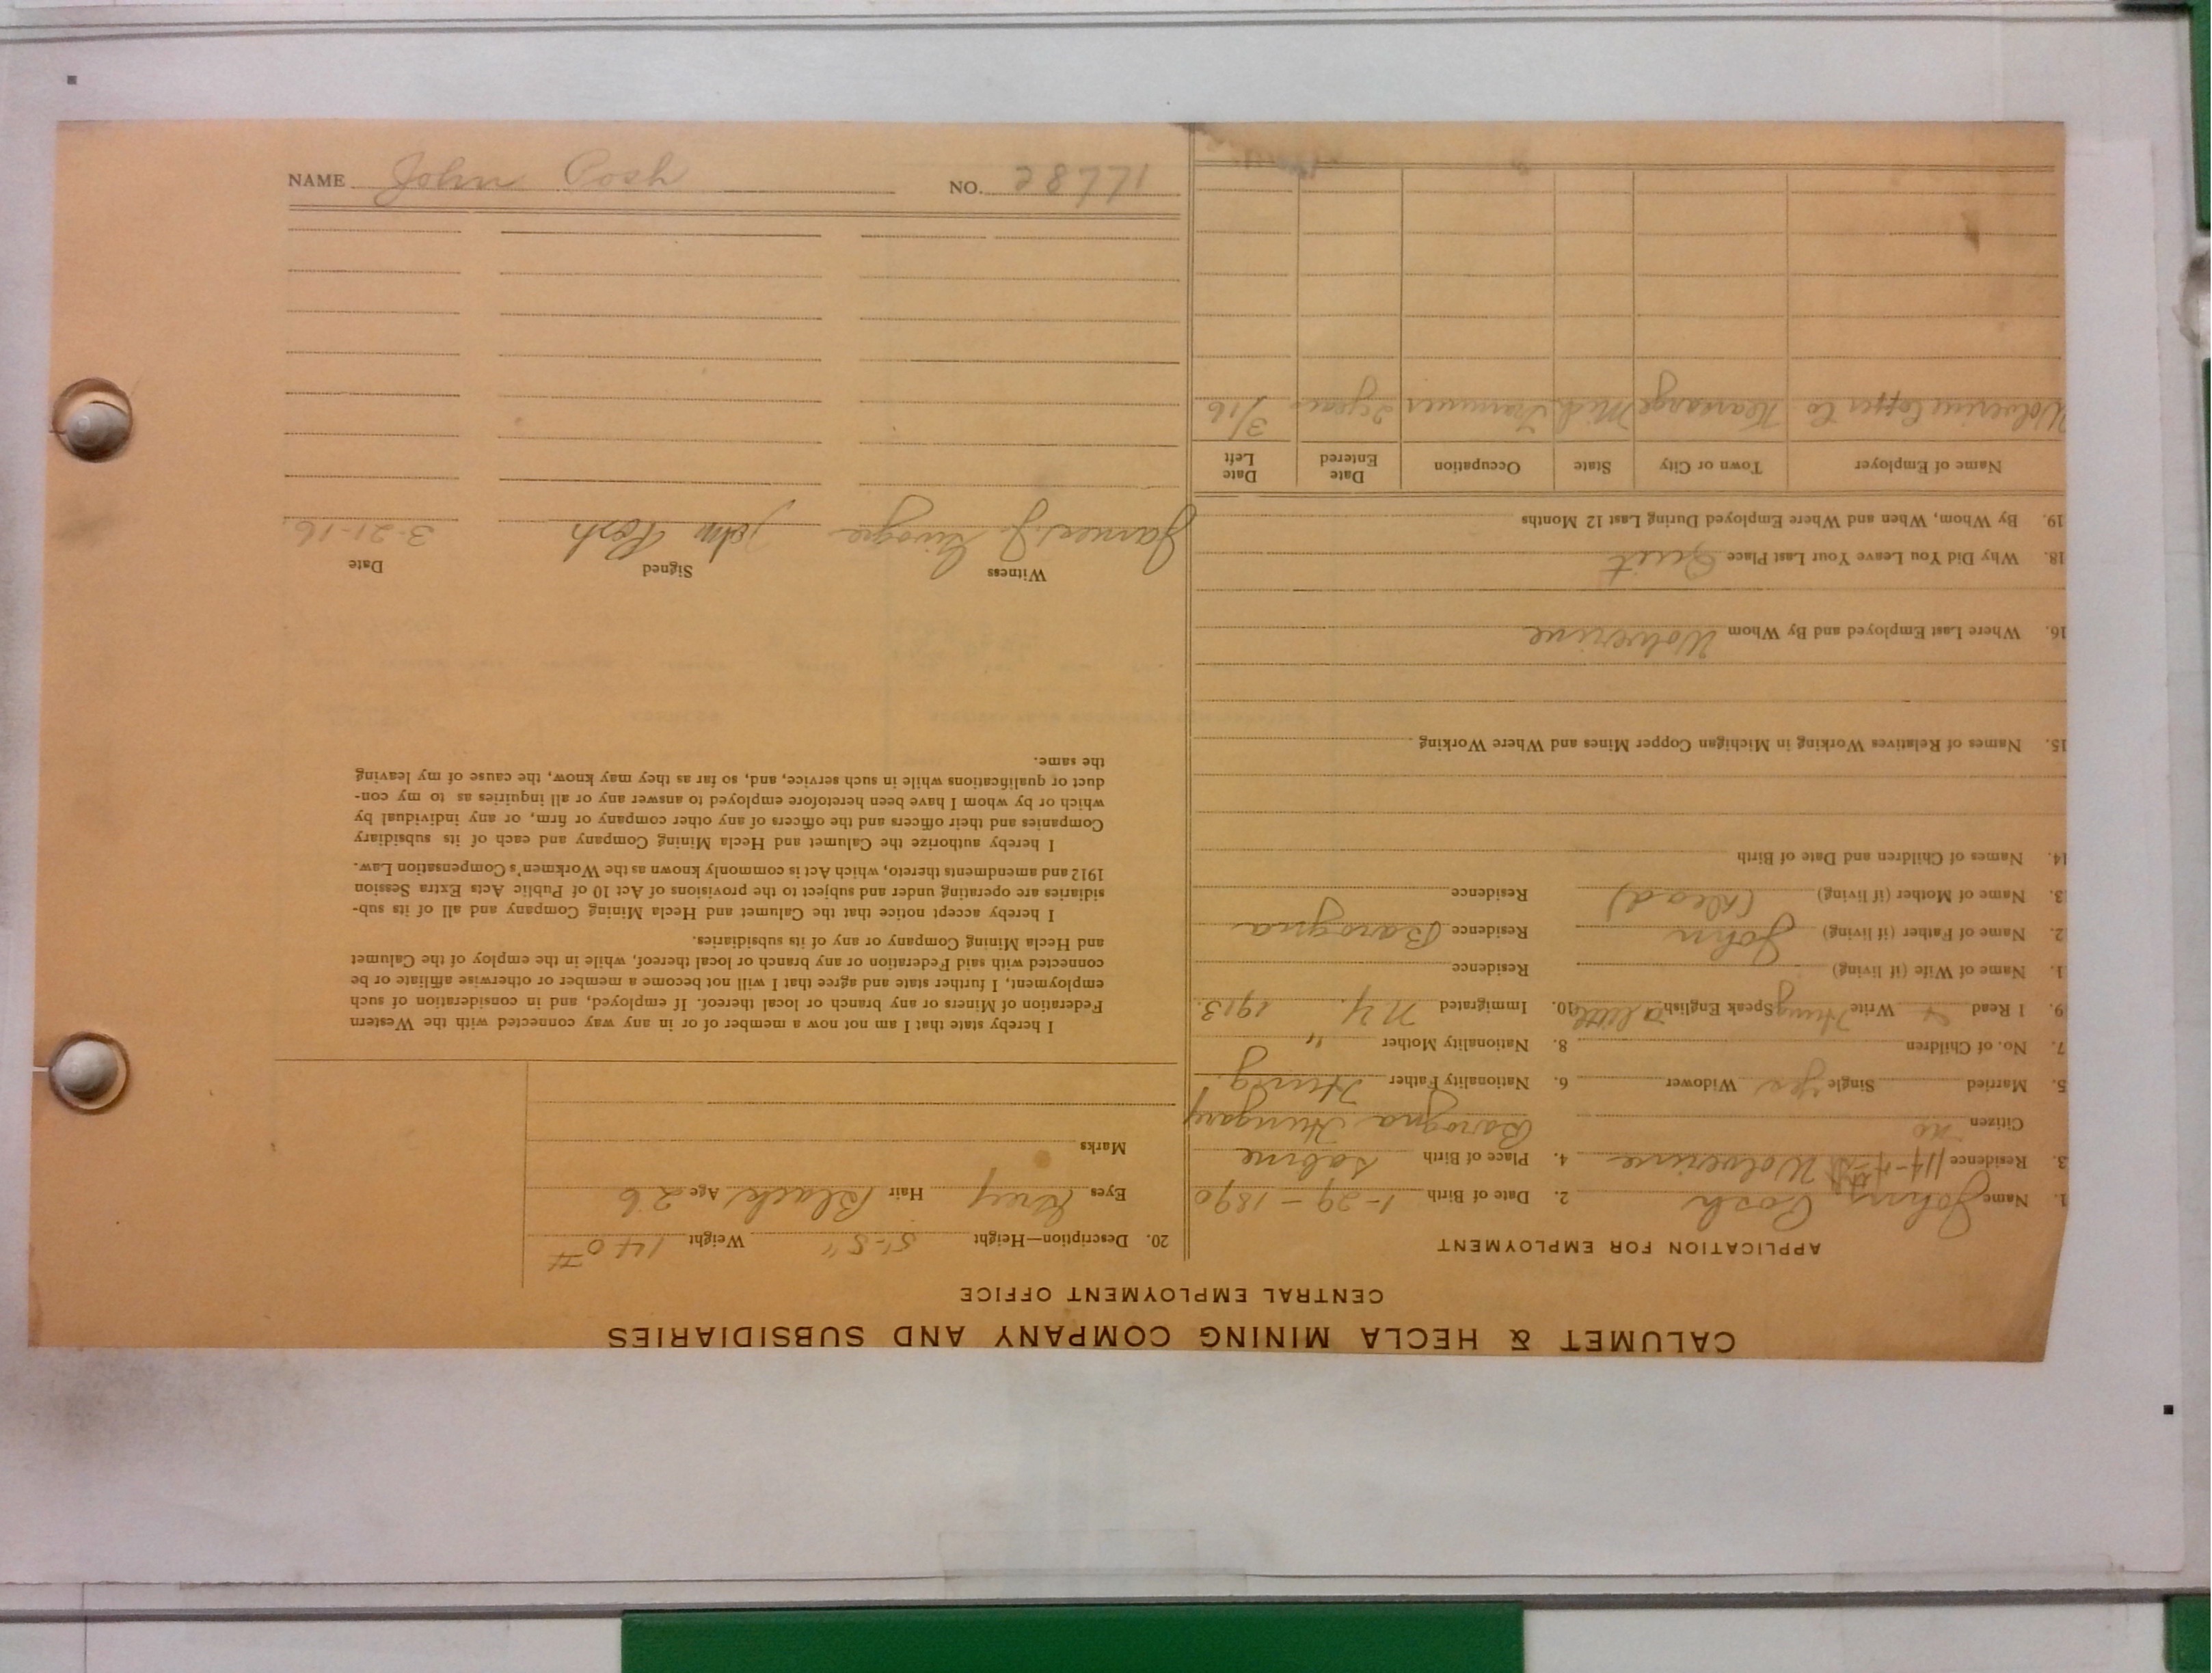 CALUMET & HECLA MINING COMPANY AND SUBSIDIARIES
CENTRAL EMPLOYMENT OFFICE
APPLICATION FOR EMPLOYMENT
1. Name Johny Posh 2. Date of Birth 1-29-1890
3. Residence 114-4th St Wolverine 4. Place of Birth
Citizen no Barogna Hungary
5. Married Single yes Widower 6. Nationality Father Hung.
7. No. of Children 8. Nationality Mother "
9. I Read + Write Hung Speak English a little 10. Immigrated N.Y. 1913.
1. Name of Wife (if living) Residence
2. Name of Father (if living) John Residence Barogna
3. Name of Mother (if living) (Dead) Residence
14. Names of Children and Date of Birth
15. Names of Relatives Working in Michigan Copper Mines and Where Working
16. Where Last Employed and By Whom Wolverine
18. Why Did You Leave Your Last Place Quit
19. By Whom, When and Where Employed During Last 12 Months
Name of Employer Town or City State Occupation Date Entered Date Left
Wolverine Copper Co Kearsarge Mich Trammer 2 years 3/16
20. Description—Height 5'-5" Weight 140 #
Eyes Grey Hair Black Age 26
Marks
I hereby state that I am not now a member of or in any way connected with the Western
Federation of Miners or any branch or local thereof. If employed, and in consideration of such
employment, I further state and agree that I will not become a member or otherwise affiliate or be
connected with said Federation or any branch or local thereof, while in the employ of the Calumet
and Hecla Mining Company or any of its subsidiaries.
I hereby accept notice that the Calumet and Hecla Mining Company and all of its sub-
sidiaries are operating under and subject to the provisions of Act 10 of Public Acts Extra Session
1912 and amendments thereto, which Act is commonly known as the Workmen's Compensation Law.
I hereby authorize the Calumet and Hecla Mining Company and each of its subsidiary
Companies and their officers and the officers of any other company or firm, or any individual by
which or by whom I have been heretofore employed to answer any or all inquiries as to my con-
duct or qualifications while in such service, and, so far as they may know, the cause of my leaving
the same.
Witness Signed Date
James J. John Posh 3-21-16.
NAME John Posh NO. 28771